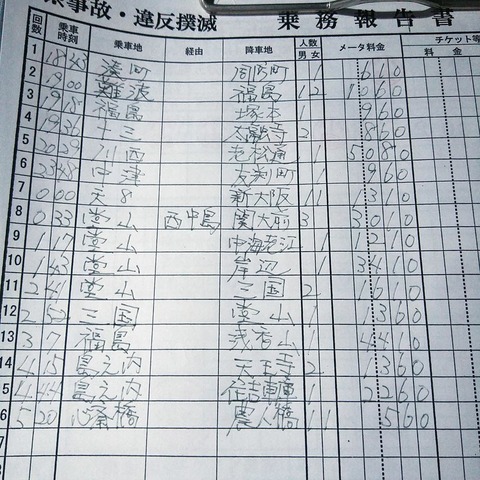 乗事故・違反撲滅 乗務報告書
回数 乗車時刻 乗車地 経由 降車地 人数 男 女 メータ料金 チケット等 料金
1 18 43 湊町 周防町 1 610
2 19 00 難波 福島 1 2 1060
3 19 18 福島 塚本 1 960
4 19 36 十三 太融寺 2 860
5 20 29 川西 老松通 1 5080
6 23 48 中津 友渕町 1 960
7 0 00 天8 新大阪 1 1 1310
8 0 33 堂山 西中島 関大前 3 3010
9 1 17 堂山 中海老江 1 1210
10 1 43 堂山 岸辺 1 3410
11 2 41 堂山 三国 2 1610
12 2 52 三国 堂山 1 1360
13 3 7 福島 我孫山 1 4410
14 4 15 島之内 天王寺 2 1360
5 4 44 島之内 住吉車庫 1 2260
6 5 20 心斎橋 農人橋 1 1 560
7
8